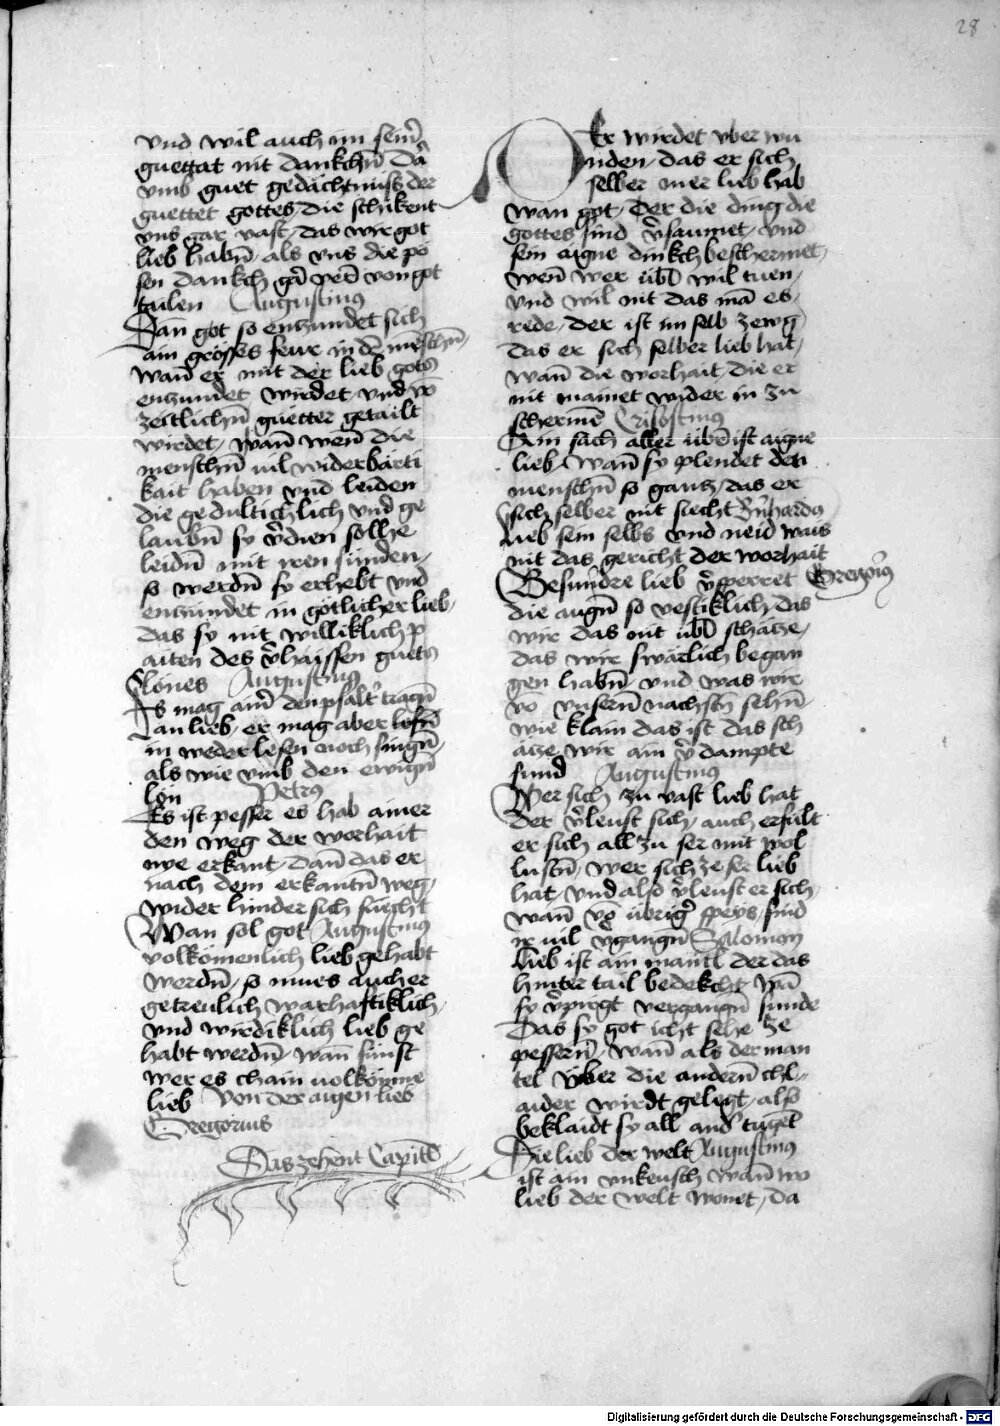 28
vnd wil auch im sein̄
guettat nit dankchn̄ Dā
vmb guet gedächtnüss der
guettet gottes die schikent
vns gar vast das wir got
lieb habn̄ als vns die pö
sen dankch gar von got
tailen Augustinus
Dan got so enzundet sich
ain grosses feur in den menschn̄
wan̄ er mit der lieb gots
enzundet wirdet vnd vō
zeitlichn̄ guetter getailt
wirdet wan̄ wen̄ die
menschn̄ uil widerbärti
kait haben vnd leiden
die gedultichlich vnd ge
laubn̄ sy v̄dien sollhe
leidn̄ mit iren sünden
so werdn̄ sy erhebt vnd
enzündet in götlicher lieb
das sy nit williklich p
aiten des v̄haissen guets
lones Augustinus
Es mag ain̄ den psalter tragn̄
an lieb er mag aber
in weder lesen noch singn̄
als wie vmb den ewign̄
lon Petrus
Es ist pesser es hab ainer
den weg der worhait
nye erkant dan̄ das er
nach dem erkantn̄ weg
wider hinder sich suecht
Wan sol got Augustinus
volkömenlich lieb gehabt
werdn̄ so mues auch er
getreulich warhaftiklich
vnd wirdiklich lieb ge
habt werdn̄ wan̄ sünst
wer es chain uolkömne
lieb Von der aigen lieb
Gregorius
Das zehent Capitel
Er wirdet vber wu
nden das er sich
selber mer lieb hab
wan got der die ding die
gottes sind v̄saumet vnd
sein aigne dinkch beschermet
wen̄ wer übl wil tuen
vnd wil nit das mā es
rede der ist im selb zewg
das er sich selber lieb hat
wan̄ die worhait die er
nit mainet wider in zu
schermē Crisostimus
Ain sach aller übel ist aigne
lieb Wan̄ sy plendet den
menschn̄ so gantz das er
sich selber nit siecht Bernhardus
Lieb sein selbs vnd neid wais
nit das gericht der worhait
Besundre lieb v̄sperret Gregorius
die augn̄ so vestiklich das
wir das nit übl schäcze
das wir swärlich began
gen habn̄ vnd was wir
vō vnsern̄ nachstn̄ sehn̄
wie klain das ist das sch
äcze wir ain v̄dampte
sund Augustinus
Wer sich zu vast lieb hat
der v̄leust sich auch erfült
er sich all zu ser mit wol
lustn̄ wer sich ze ser lieb
hat vnd also v̄leust er sich
wan̄ vō übriḡ speys sind
ir uil v̄gangn̄ Salomon
Lieb ist ain mantl der das
hinter tail bedekcht Wan̄
sy v̄pirgt vergangn̄ sunde
Das sy got icht sehe ze
pessern̄ Wan̄ als der man
tel über die andern̄ chl
aider wirdt gelegt also
beklaidt sy all and̄ tugēt
Die lieb der welt Augustinus
ist ain vnkeusch wan̄ wo
lieb der welt wonet da
Digitalisierung gefördert durch die Deutsche Forschungsgemeinschaft - DFG